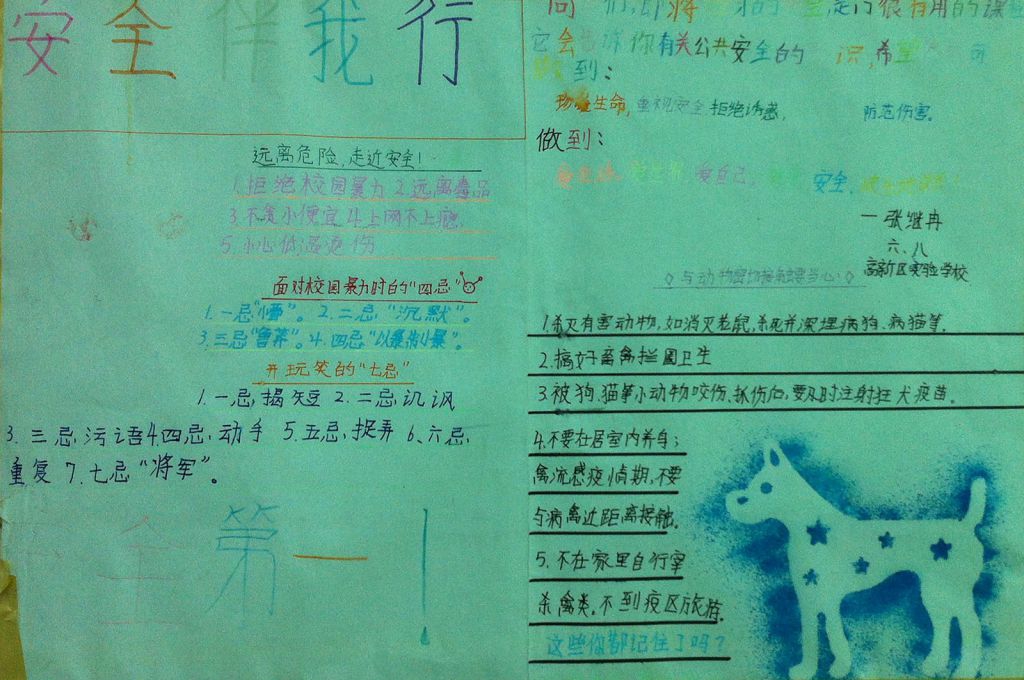 安全伴我行
远离危险,走近安全!
1.拒绝校园暴力 2.远离毒品
3.不贪小便宜 4.上网不上瘾.
5.小心低温烫伤
面对校园暴力时的“四忌”
1.一忌“懵”。 2.二忌,“沉默”。
3.三忌“鲁莽”。4.四忌“以暴制暴”。
开玩笑的“七忌”
1.一忌,揭短 2.二忌,讥讽
3.三忌,污语 4.四忌,动手 5.五忌,捉弄 6.六忌,
重复 7.七忌“将军”。
全第一!
同们,即将的是门很有用的课
它会告诉你有关公共安全的识,希望
做到:
珍爱生命,重视安全,拒绝诱惑, 防范伤害。
做到:
爱自己, 安全,
一张继冉
六.八
高新区实验学校
◇与动物密切接触要当心!◇
1.杀灭有害动物,如消灭老鼠,杀死并深埋病狗、病猫等.
2.搞好畜禽拦圈卫生
3.被狗.猫等小动物咬伤、抓伤后,要及时注射狂犬疫苗。
4.不要在居室内养鸟;
禽流感疫情期,不要
与病禽近距离接触。
5.不在家里自行宰
杀禽类.不到疫区旅游.
这些你都记住了吗?